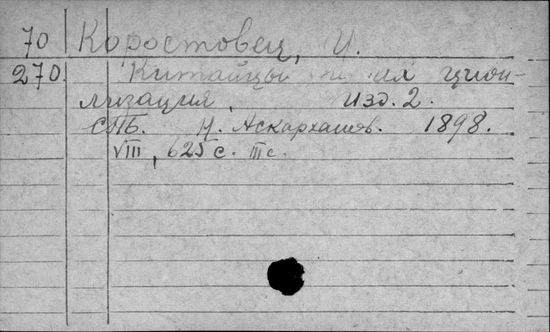 70 Коростовец, И.
270. Китайцы и их циви-
лизация, изд. 2.
СПБ. Н. Аскарханов. 1898.
VIII, 625 с. III с.